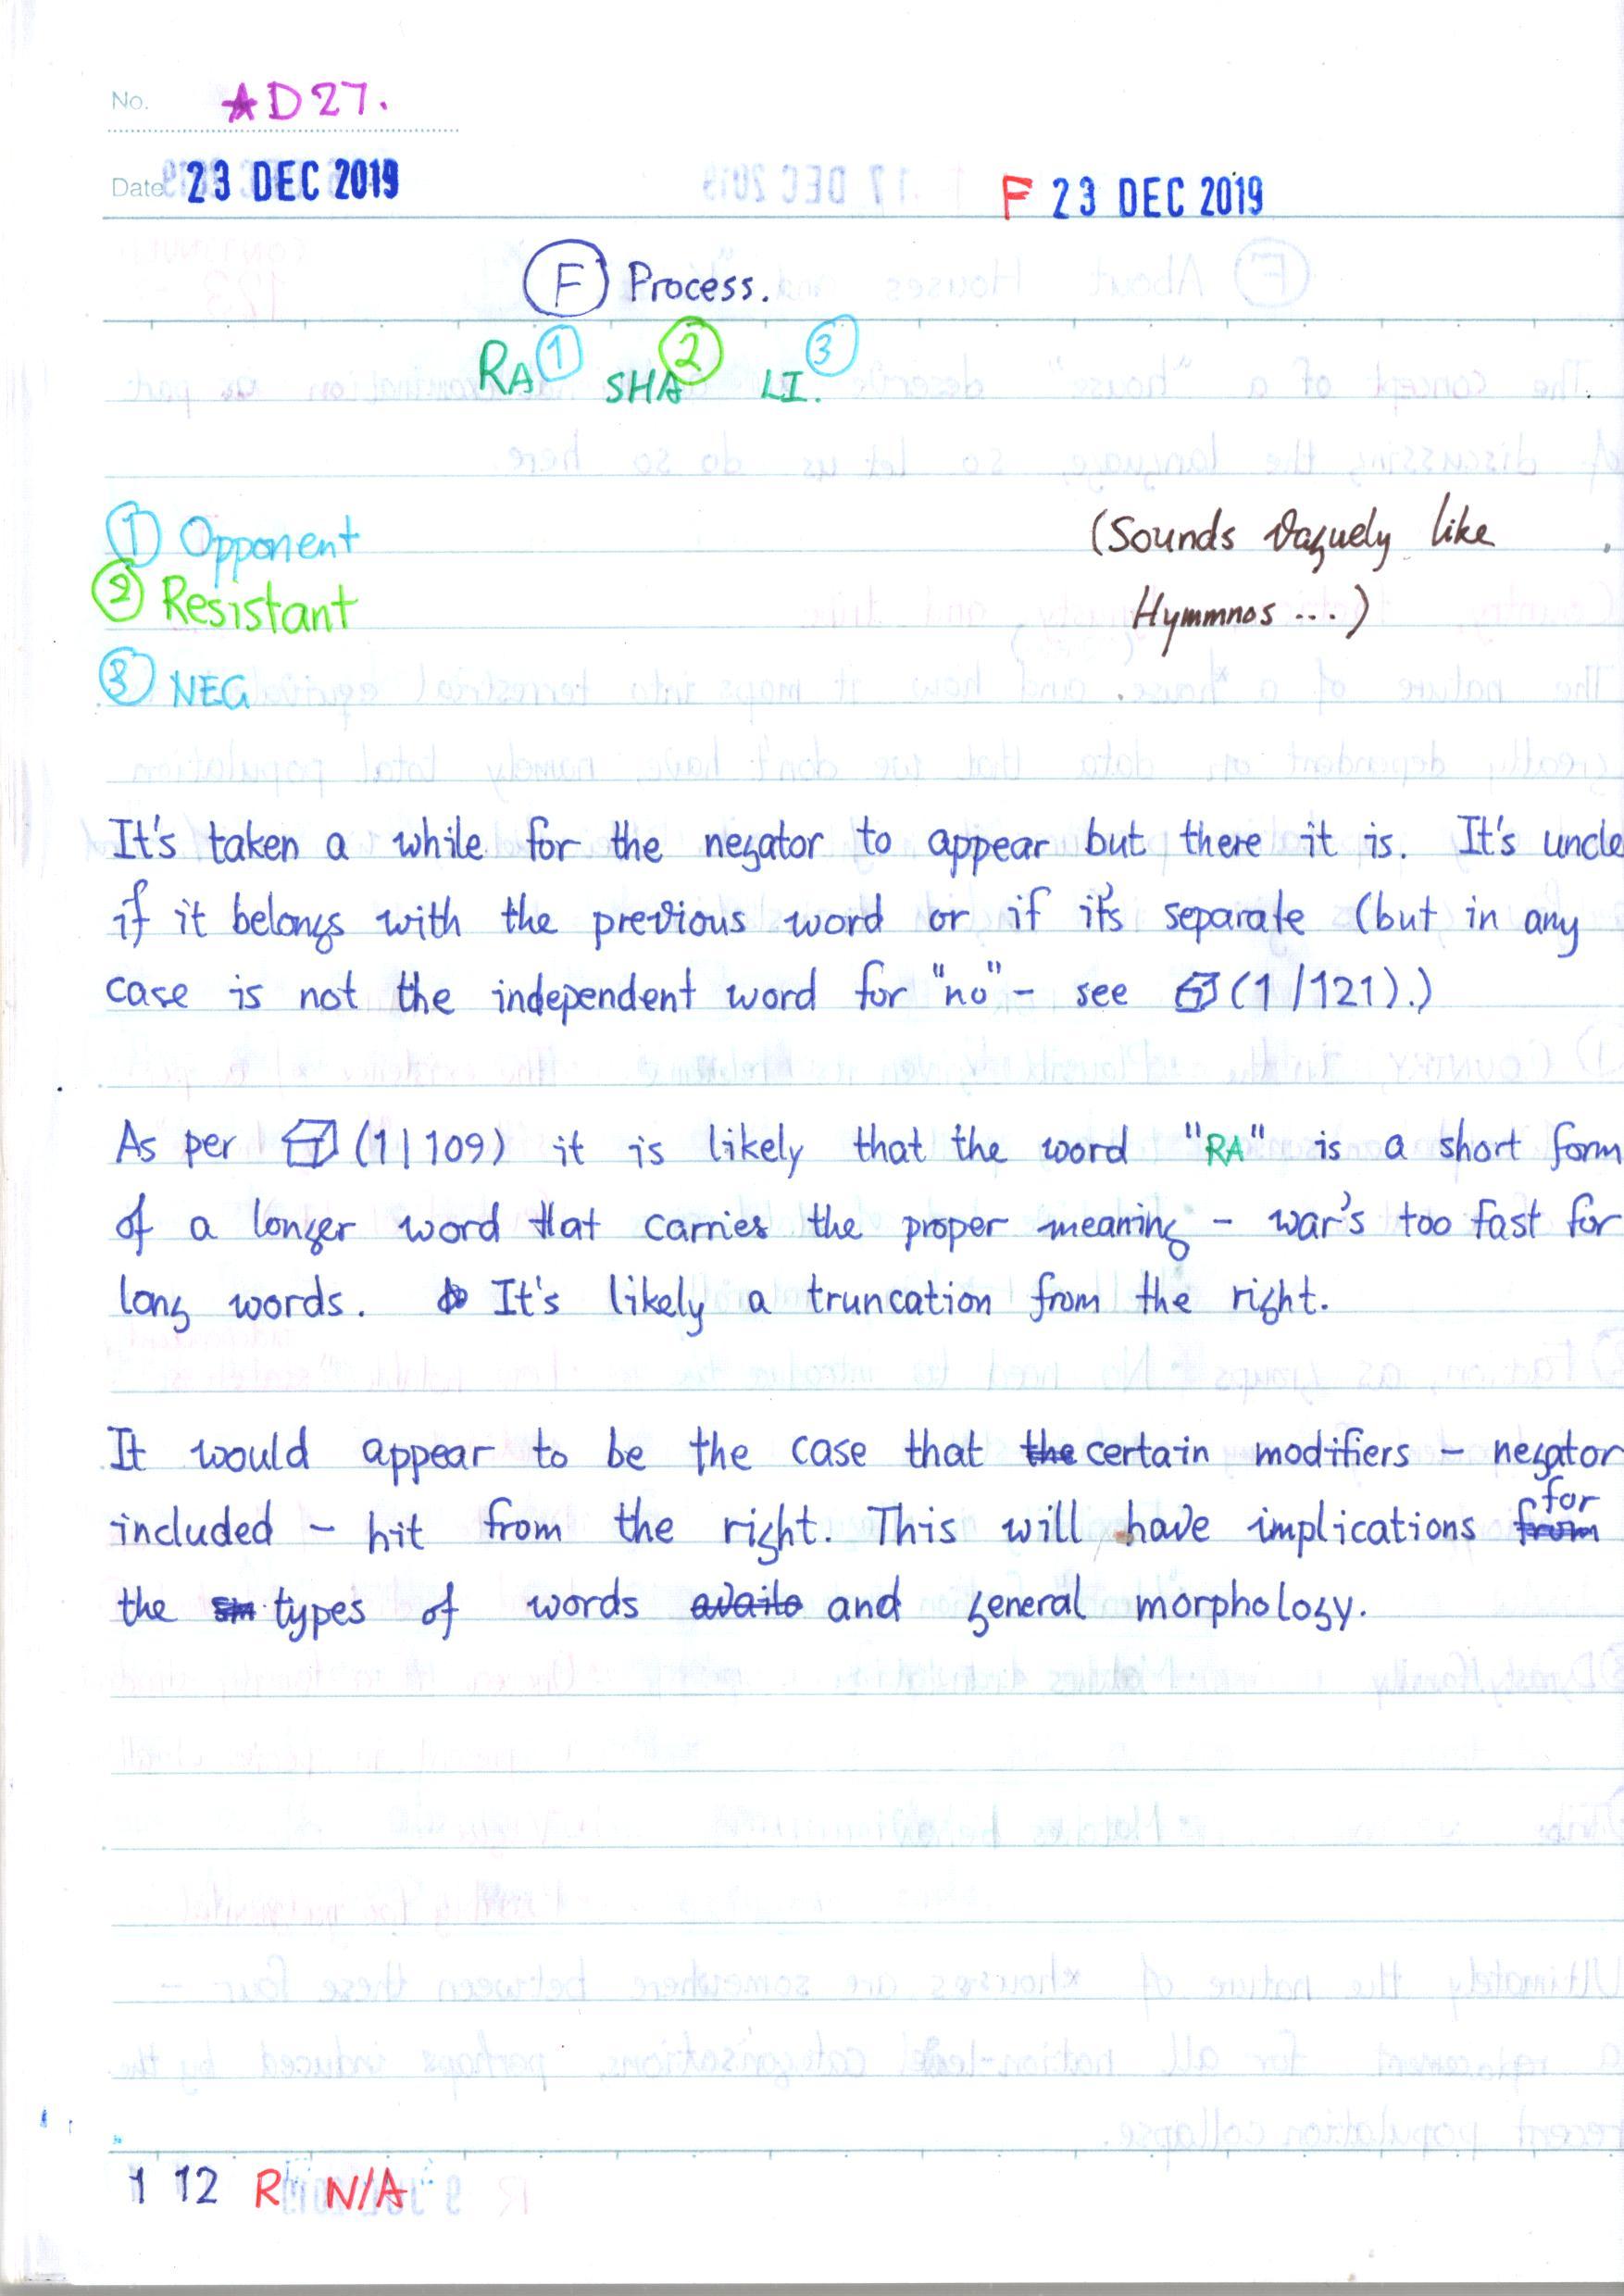 No. ★D27.
Date 23 DEC 2019 F 23 DEC 2019
F Process.
RA 1 SHA 2 LI. 3
1 Opponent
2 Resistant
3 NEG
(Sounds vaguely like
Hymmnos ...)
It's taken a while for the negator to appear but there it is. It's uncle
if it belongs with the previous word or if it's separate (but in any
case is not the independent word for "no" - see (1/121).)
As per (1/109) it is likely that the word "RA" is a short form
of a longer word that carries the proper meaning - war's too fast for
long words. It's likely a truncation from the right.
It would appear to be the case that the certain modifiers - negator
included - hit from the right. This will have implications from for
the types of words and general morphology.
1 12 R N/A